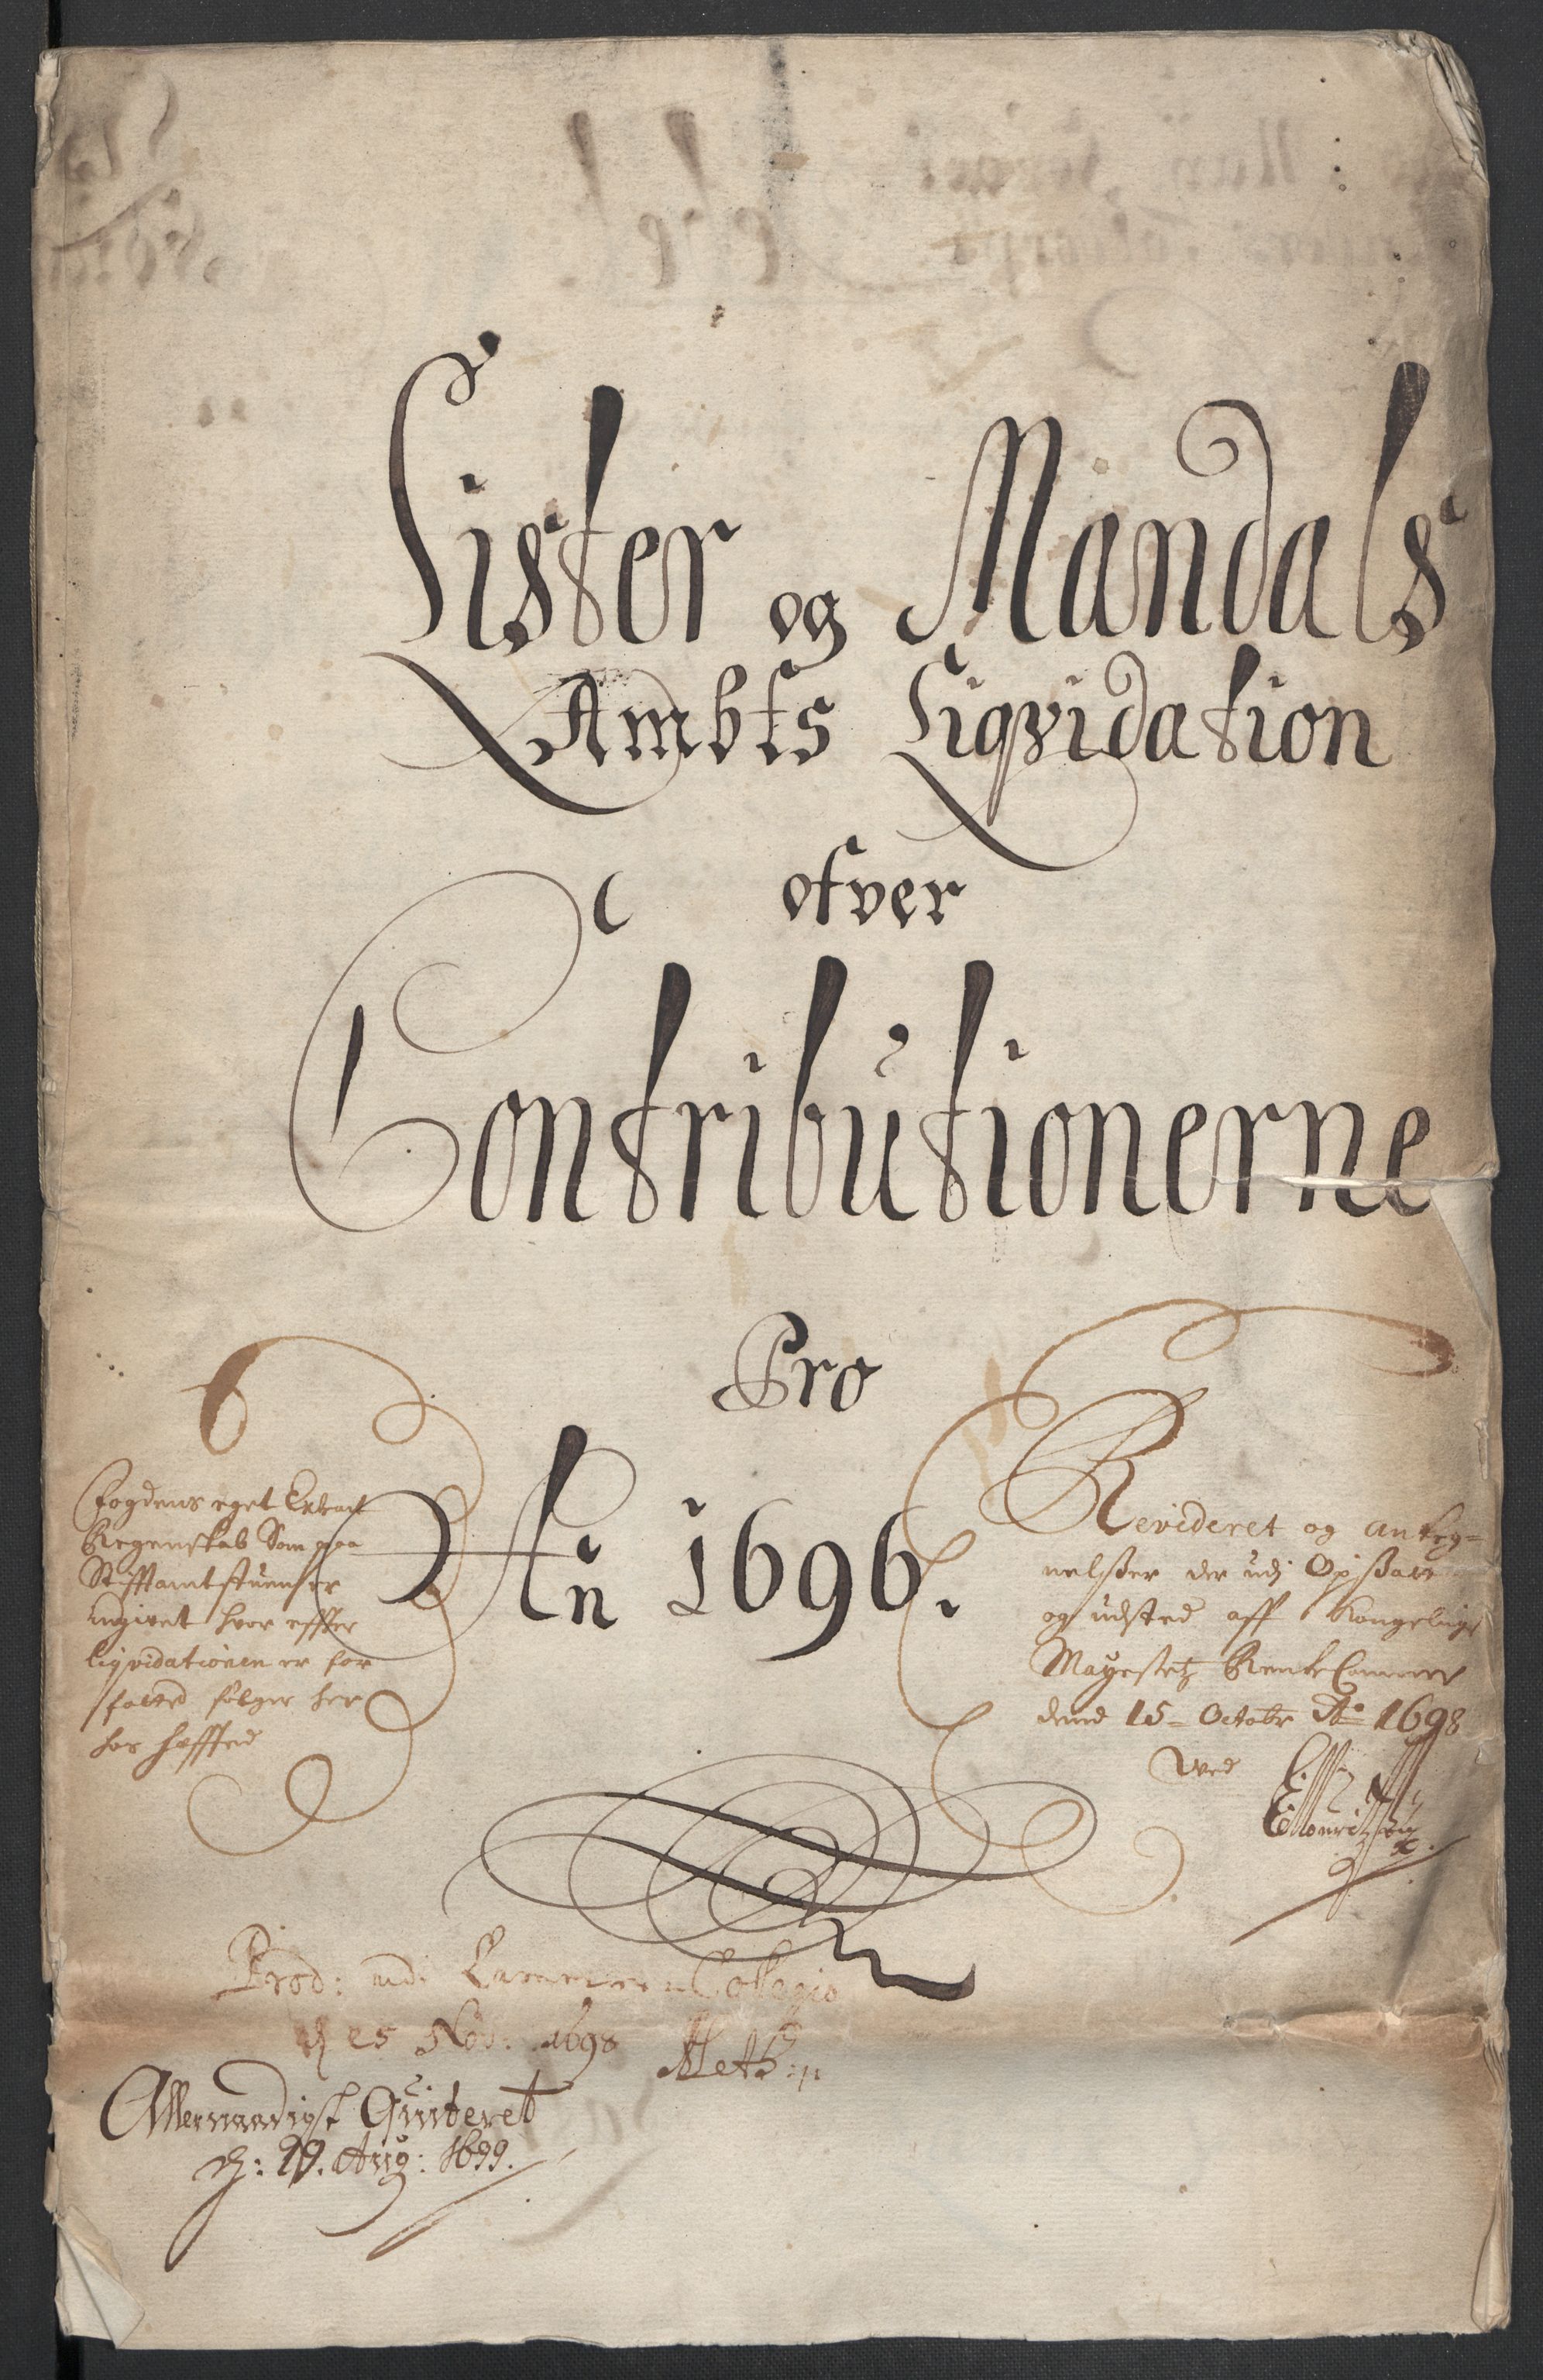 Lister og Mandals
Ambts Liqvidation
ofver
Contributionerne
Pro
An 1696.
Fogdens eget Extract
Regenskab Som paa
Stifftamtstuen er
udgivet hvor effter
liqvidationen er for
fatted følger her
hos heffted
Revideret og Anteg-
nelsser der udj Opssatt
og udsted aff Kongelige
Mayestetz Rente Cammer
dend 15 - Octobr Ao 1698
Ved
Prod: udi Cammer Collegio
d 25 Nov: 1698
Allernaadigst Qviteret
d: 29. Aug: 1699.